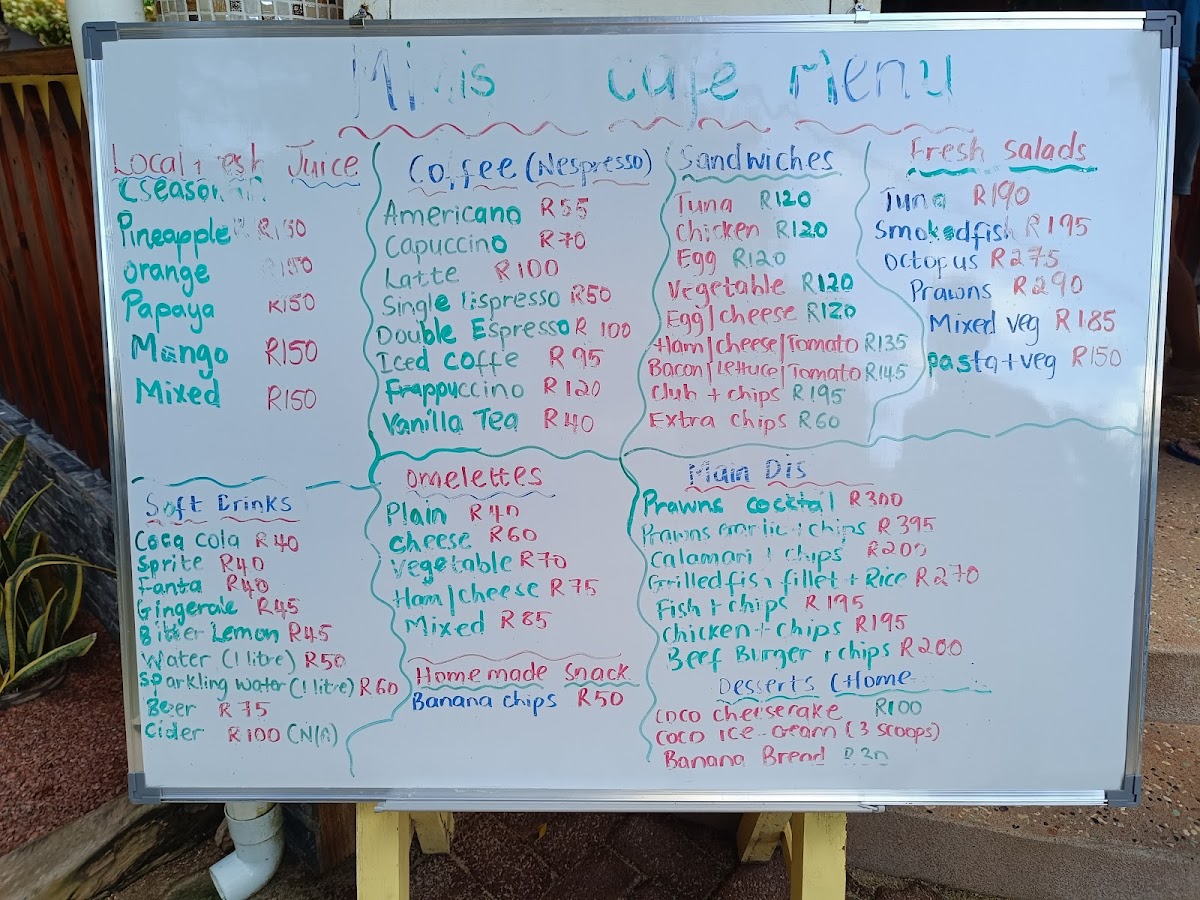 Mimis cafe Menu
Local fresh Juice
Pineapple R150
Orange R150
Papaya R150
Mango R150
Mixed R150
Coffee (Nespresso)
Americano R55
Capuccino R70
Latte R100
Single Espresso R50
Double Espresso R100
Iced coffe R95
Frappuccino R120
Vanilla Tea R40
Sandwiches
Tuna R120
Chicken R120
Egg R120
Vegetable R120
Egg/cheese R120
Ham/cheese/Tomato R135
Bacon/Lettuce/Tomato R145
Club + chips R195
Extra chips R60
Fresh Salads
Tuna R190
Smokedfish R195
Octopus R275
Prawns R290
Mixed veg R185
pasta+veg R150
Soft Drinks
Coca cola R40
Sprite R40
Fanta R40
Gingerale R45
Bitter Lemon R45
Water (1 litre) R50
Sparkling water (1 litre) R60
Beer R75
Cider R100 (N/A)
Omelettes
Plain R40
cheese R60
vegetable R70
Ham/cheese R75
Mixed R85
Homemade Snack
Banana chips R50
Main Dis
Prawns cocktail R300
Prawns garlic + chips R395
Calamari + chips R200
Grilled fish fillet + Rice R270
Fish + chips R195
Chicken + chips R195
Beef Burger + chips R200
Desserts (Home
Coco cheesecake R100
Coco ice-cream (3 scoops)
Banana Bread